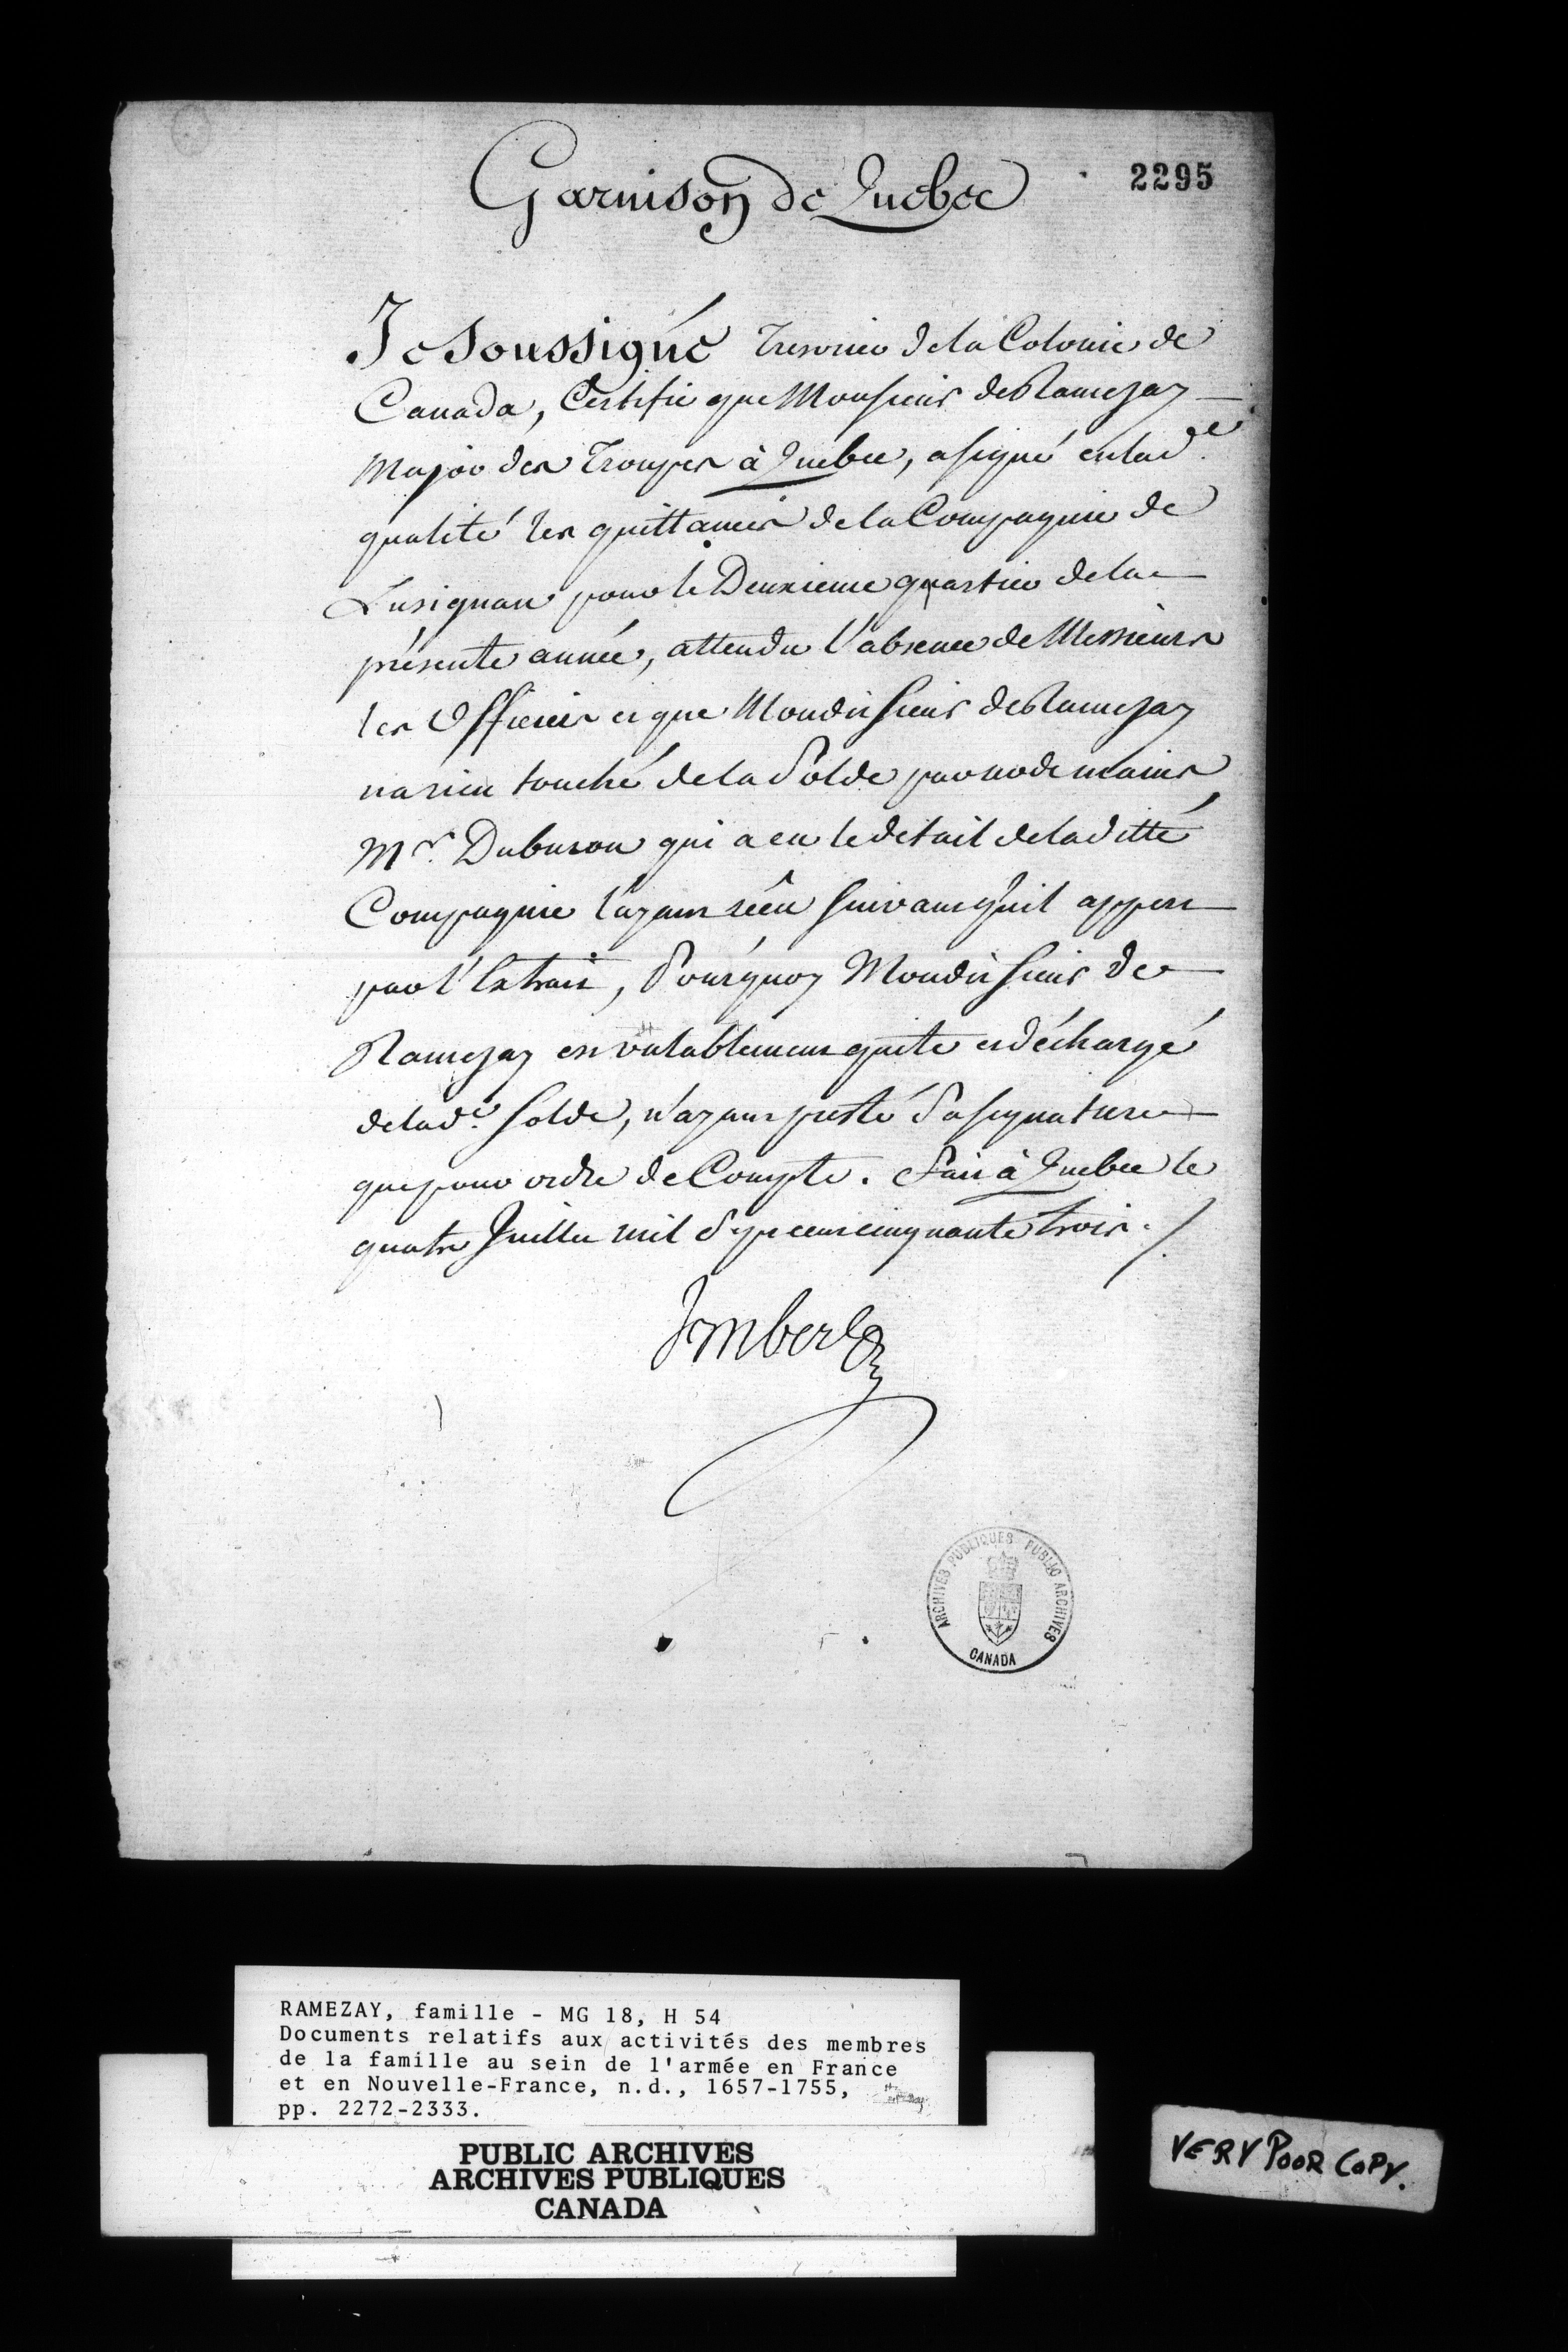 2295
Garnison de Quebec
Je Soussigné Tresorier de la Colonie de
Canada, Certifie que Monsieur de Ramezay
Major des Troupes à Quebec, a signé en lad.e
qualité les quittances de la Compagnie de
Lusignan pour le Deuxieme quartier de la
présente année, attendu l'absence de Messieurs
les Officiers et que Mondit Sieur de Ramezay
na rien touché de la Solde par nos de mains
Mr. Duburon qui a eu le detail de la ditte
Compagnie l'ayant reçu suivant qu'il appert
par l'Extrait, Pourquoy Mondit Sieur de
Ramezay est valablement quite et déchargé
de lad.e Solde, n'ayant presté Sa signature
que pour ordre de Compte. Fait à Quebec le
quatre Juillet mil Sept cent cinquante trois ./.
Imbert
ARCHIVES PUBLIQUES PUBLIC ARCHIVES
CANADA
RAMEZAY, famille - MG 18, H 54
Documents relatifs aux activités des membres
de la famille au sein de l'armée en France
et en Nouvelle-France, n.d., 1657-1755,
pp. 2272-2333.
PUBLIC ARCHIVES
ARCHIVES PUBLIQUES
CANADA
VERY POOR COPY.